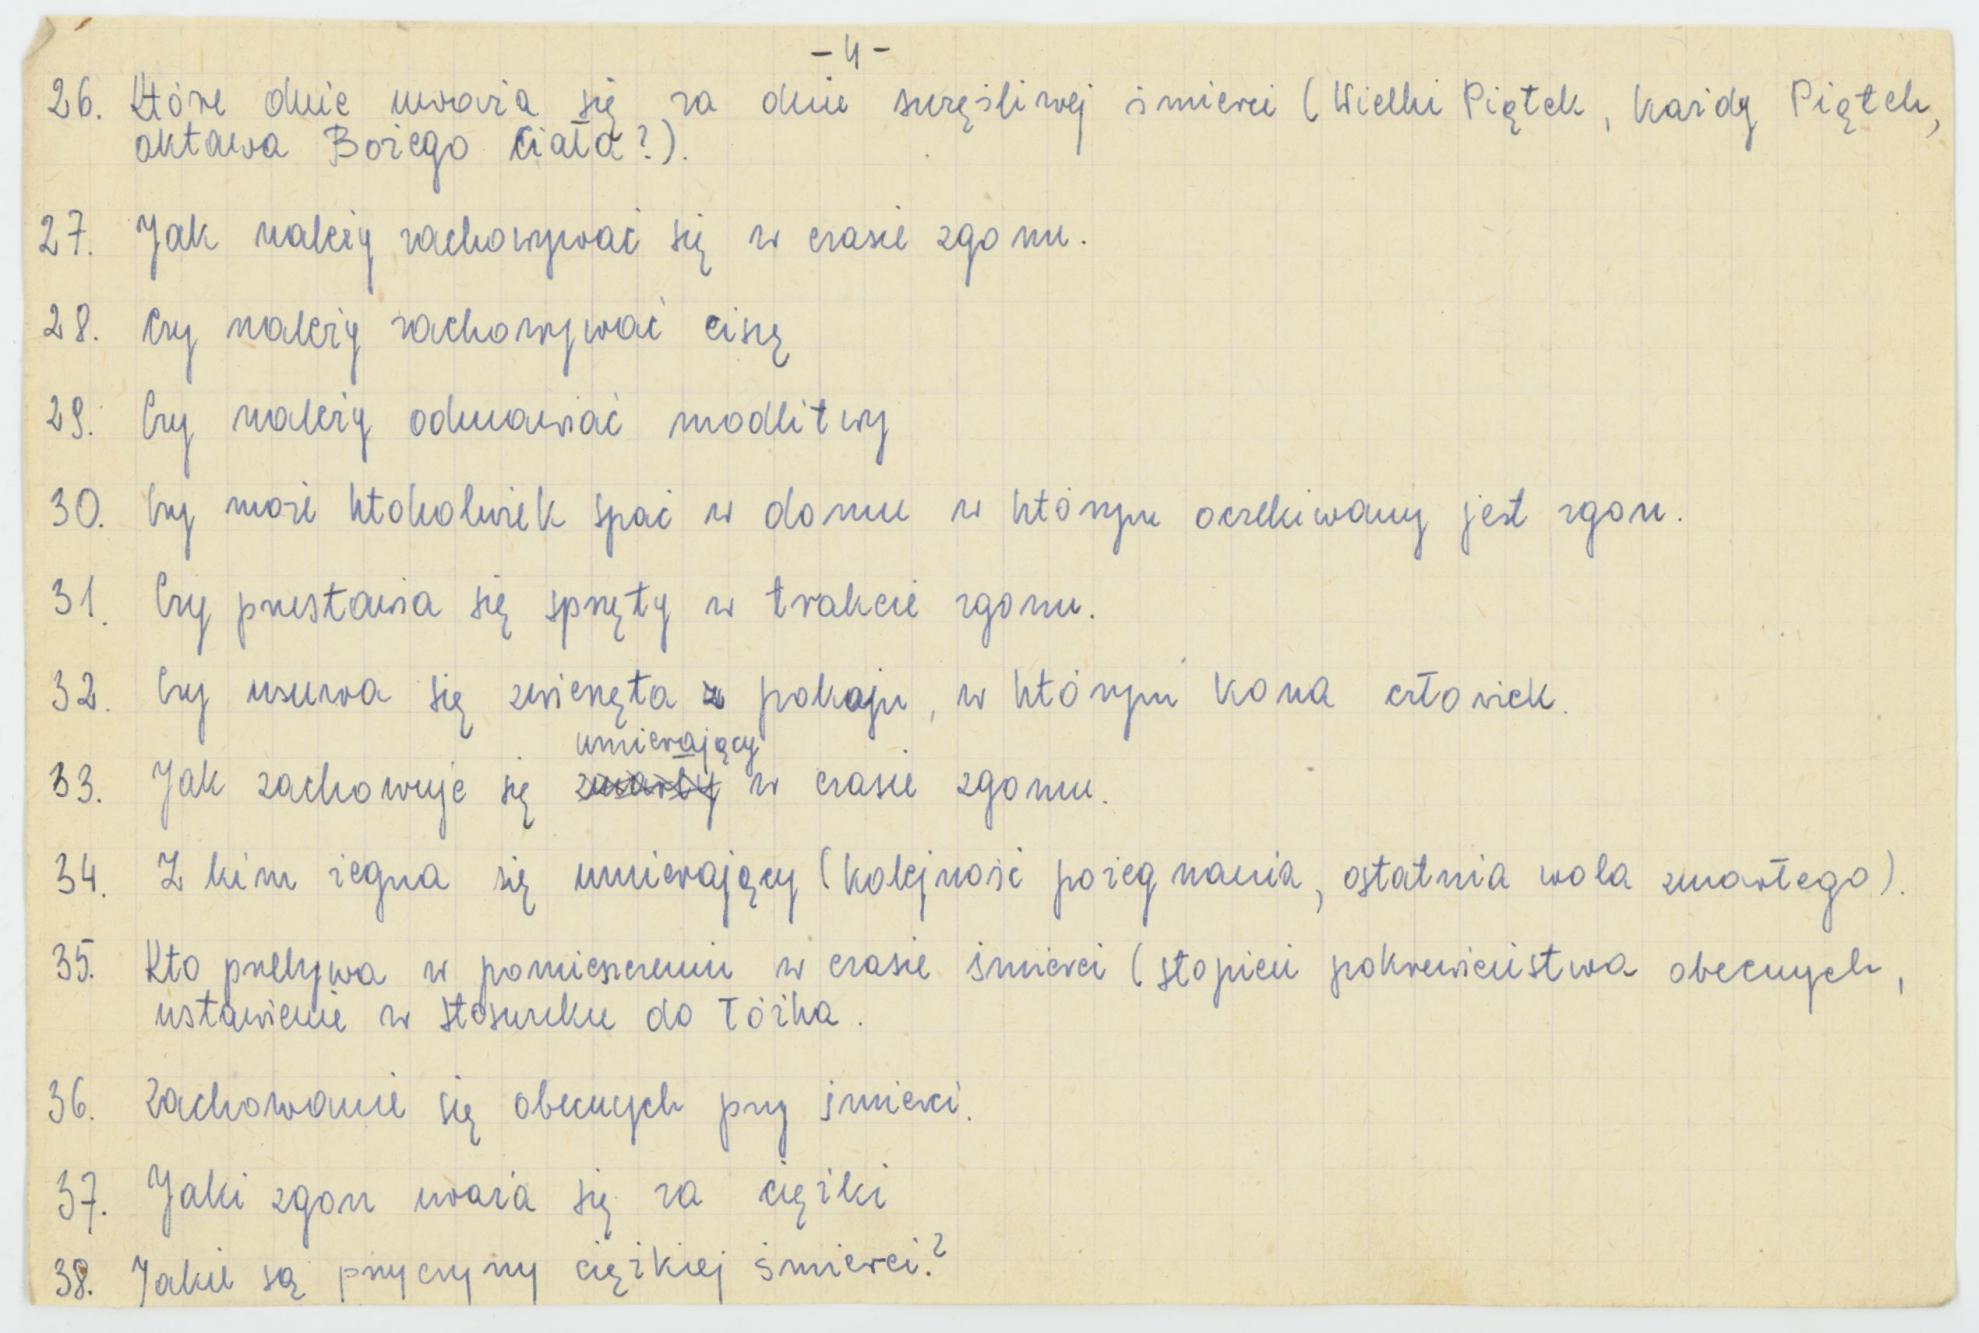 - 4 -
26. Które dnie uważa się za dnie szczęśliwej śmierci (Wielki Piątek, każdy Piątek,
oktawa Bożego Ciała?).
27. Jak należy zachowywać się w czasie zgonu.
28. Czy należy zachowywać ciszę
29. Czy należy odmawiać modlitwy
30. Czy może ktokolwiek spać w domu w którym oczekiwany jest zgon.
31. Czy przestawia się sprzęty w trakcie zgonu.
32. Czy usuwa się zwierzęta z pokoju, w którym kona człowiek.
umierający
33. Jak zachowuje się zmarły w czasie zgonu.
34. Z kim żegna się umierający (kolejność pożegnania, ostatnia wola zmarłego).
35. Kto przebywa w pomieszczeniu w czasie śmierci (stopień pokrewieństwa obecnych,
ustawienie w stosunku do łóżka.
36. Zachowanie się obecnych przy śmierci.
37. Jaki zgon uważa się za ciężki
38. Jakie są przyczyny ciężkiej śmierci?